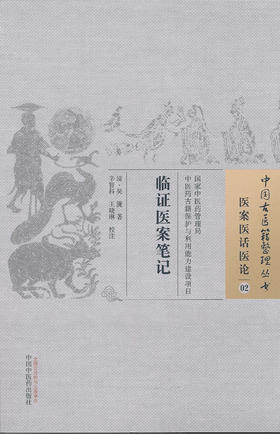 中国古医籍整理丛书
医案医话医论
02
国家中医药管理局
中医药古籍保护与利用能力建设项目
临证医案笔记
清·吴篪 著
辛智科 王晓琳 校注
中国中医药出版社